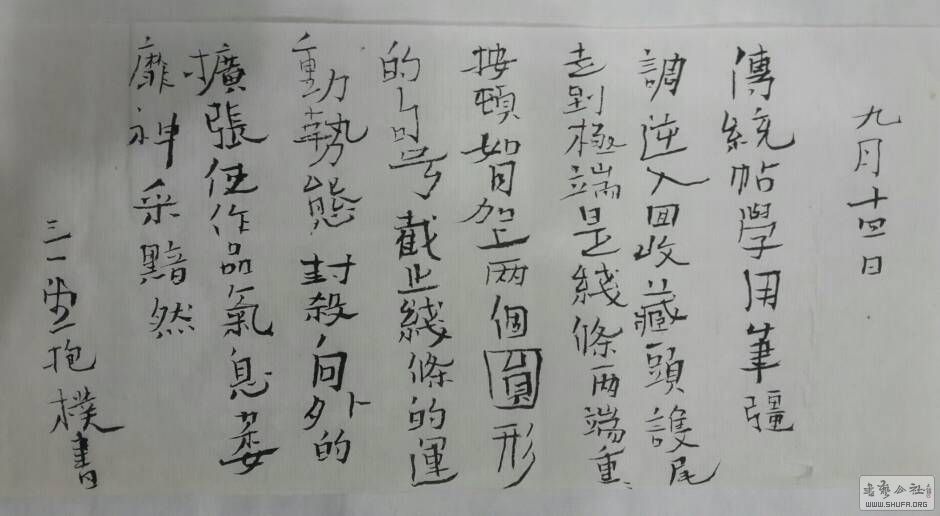 九月十四日
傳統帖學用筆彊
調逆入回收藏頭護尾
走到極端是綫條两端重
按頓首加上两個圓形
的句号截止綫條的運
動勢態封殺向外的
擴張使作品氣息萎
靡神采黯然
三一堂抱樸書
書藝公社
WWW.SHUFA.ORG